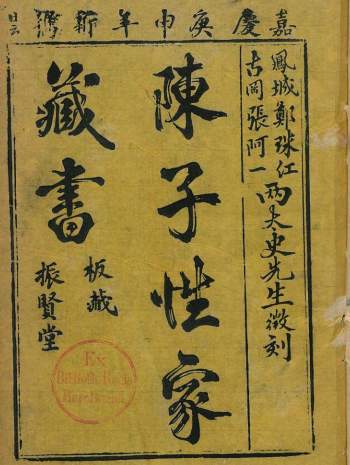 嘉慶庚申年新鐫
鳳城鄭珠江
古岡張阿一
兩太史先生徵刻
陳子性家
藏書
板藏
振賢堂
Ex
Biblioth. Regia
Berolinensi